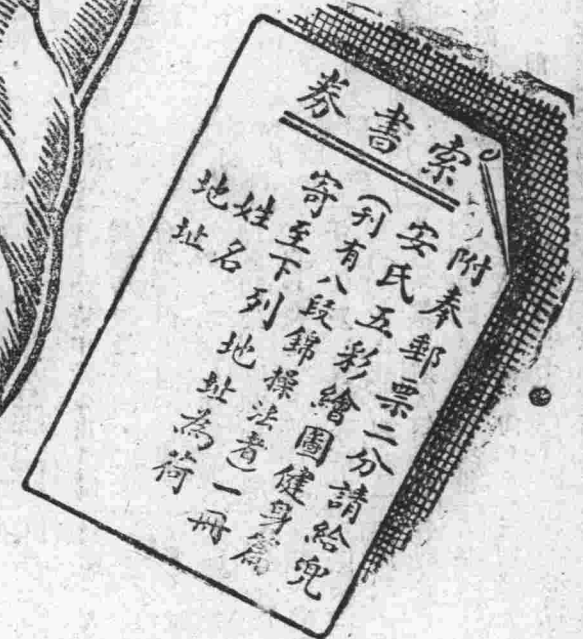 索書券
附奉郵票二分請給兜
安氏五彩繪圖健身篇
(刋有八段錦操法者)一冊
寄至下列地址為荷
姓名
地址